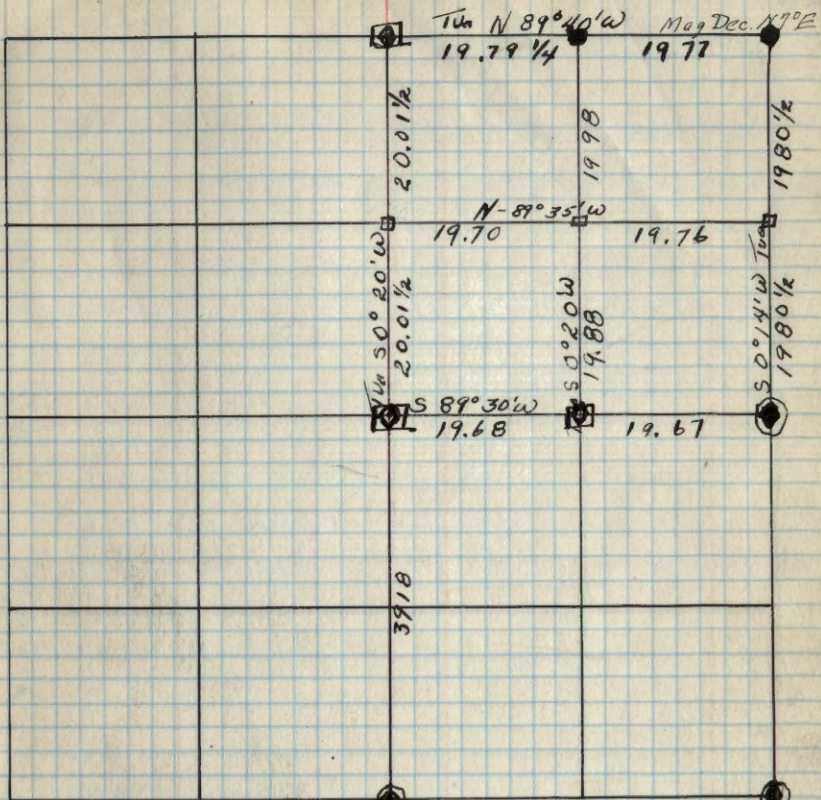 Tva N 89°40'W Mag Dec. N 7°E
19.79 1/4 19 77
20.01 1/2
19 98
19 80 1/2
N-89°35'W
19.70 19.76
Tva S 0° 20' W
20.01 1/2
S 0°20'W
19.88
S 0°14'W Tva
19 80 1/2
S 89°30'W
19.68 19.67
39 18